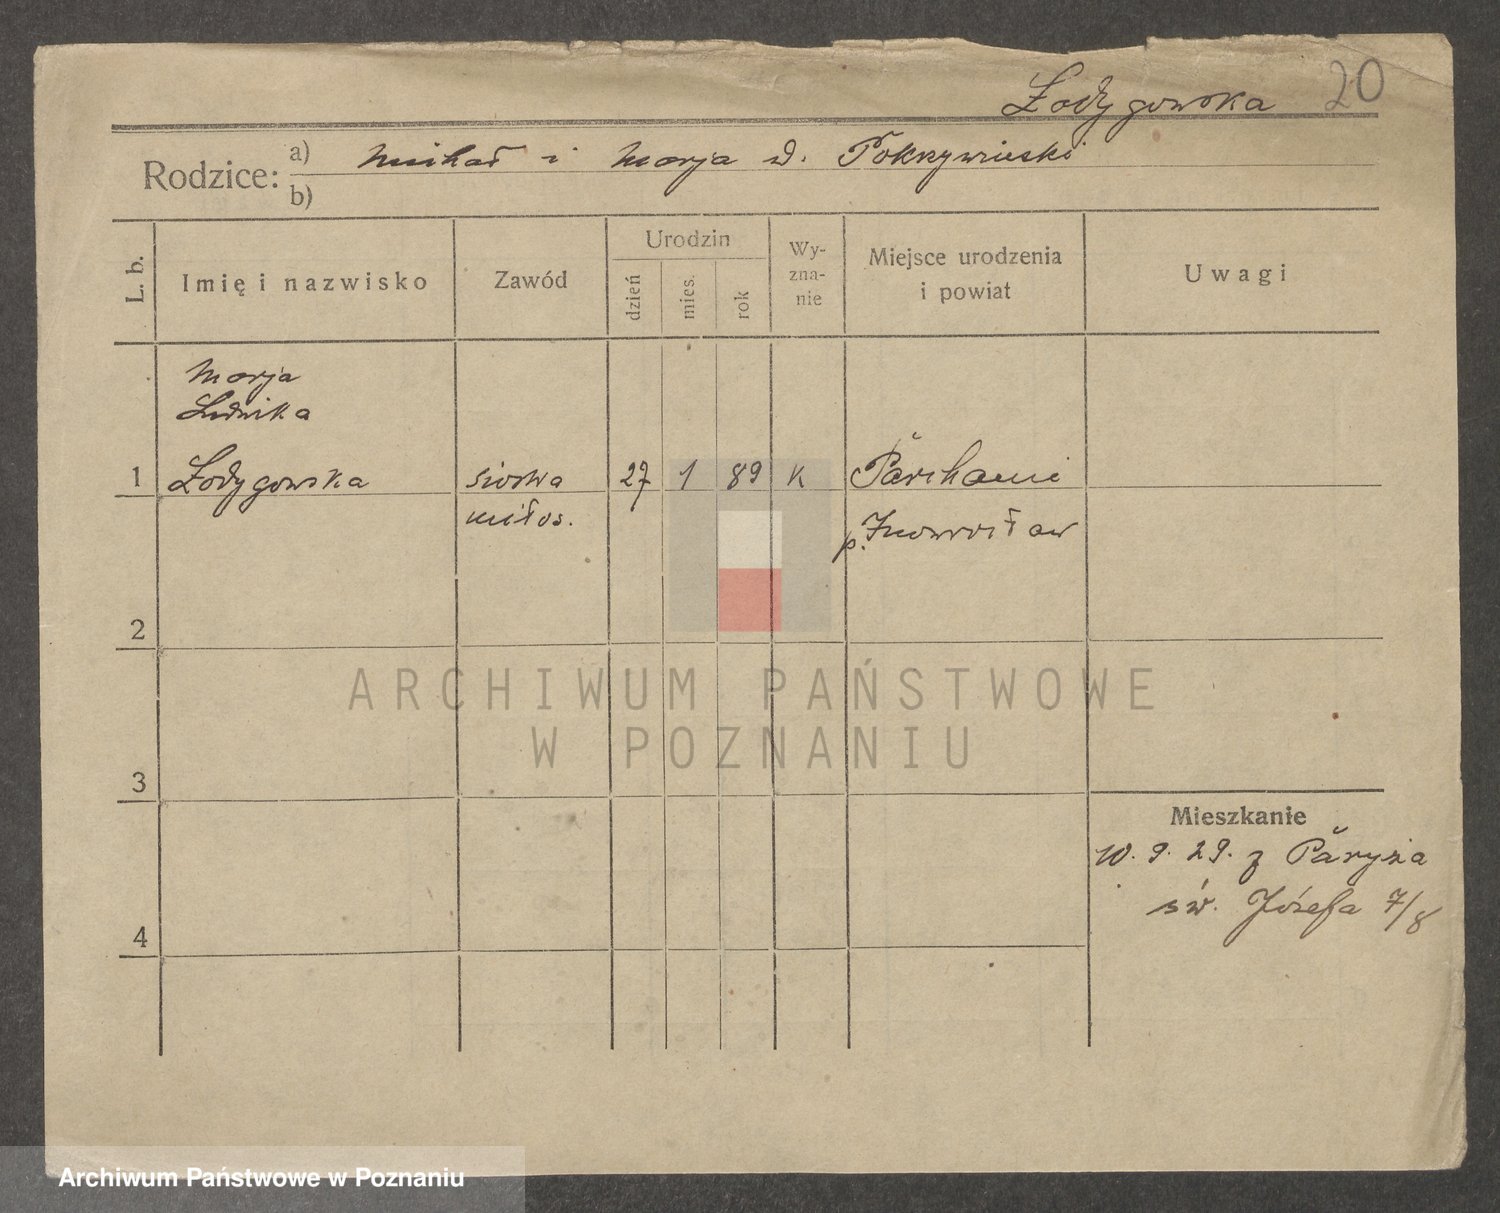 Łodygowska 20
Rodzice:
a) Michał i Marja d. Pokrzywiński
b)
L. b.
Imię i nazwisko
Zawód
Urodzin
dzień
mies.
rok
Wy-
zna-
nie
Miejsce urodzenia
i powiat
Uwagi
Marja
Ludwika
1 Łodygowska siostra 27 1 89 K Parchanie
miłos. p. Inowrocław
2
3
4
Mieszkanie
10. 9. 29. z Paryża
św. Józefa 7/8
ARCHIWUM PAŃSTWOWE
W POZNANIU
Archiwum Państwowe w Poznaniu